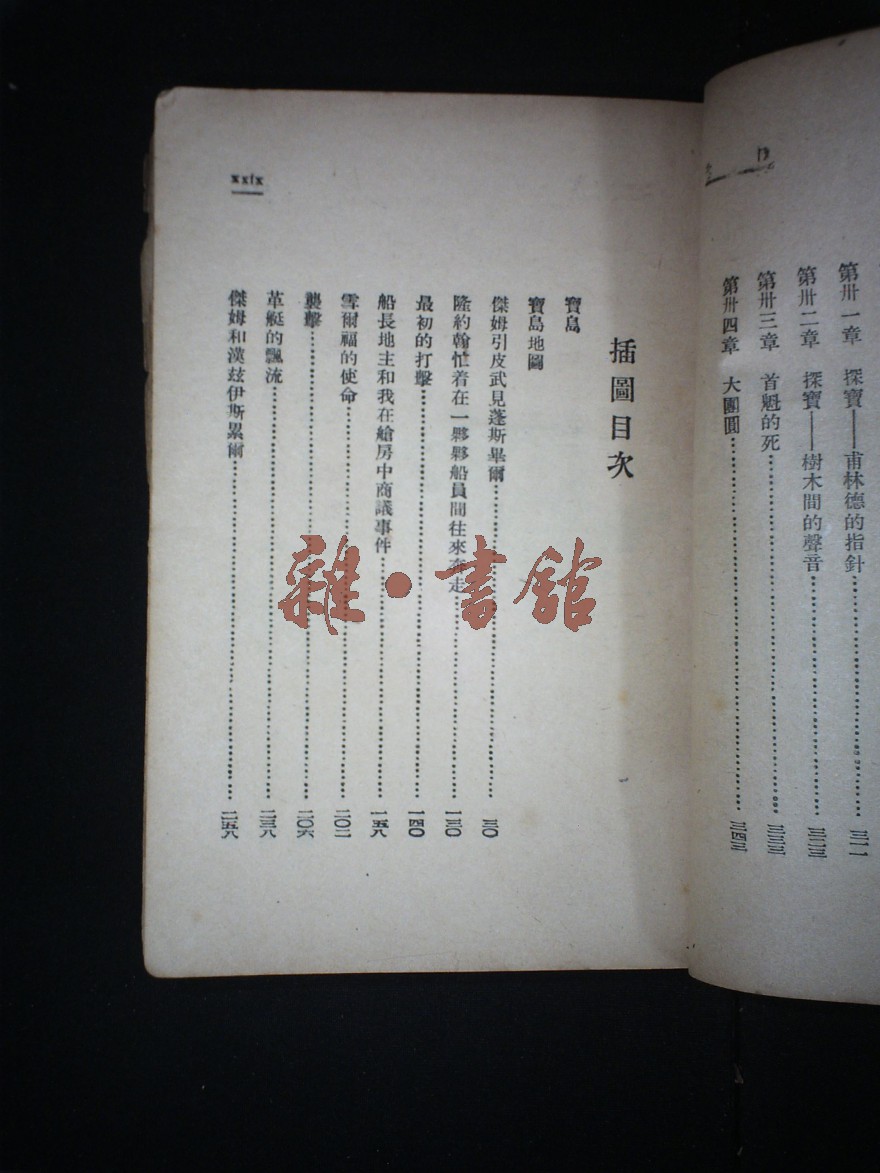 第卅一章 探寶——甫林德的指針……三一一
第卅二章 探寶——樹木間的聲音……
第卅三章 首魁的死……三三三
第卅四章 大團圓……三四三
插圖目次
寶島
寶島地圖
傑姆引皮武見蓬斯畢爾……三〇
隆約翰忙着在一夥夥船員間往來奔走……一三〇
最初的打擊……一四〇
船長地主和我在艙房中商議事件……一五八
雪爾福的使命……二〇二
襲擊……二〇六
革艇的飄流……二三八
傑姆和漢兹伊斯累爾……二五八
xxix
雜·書館